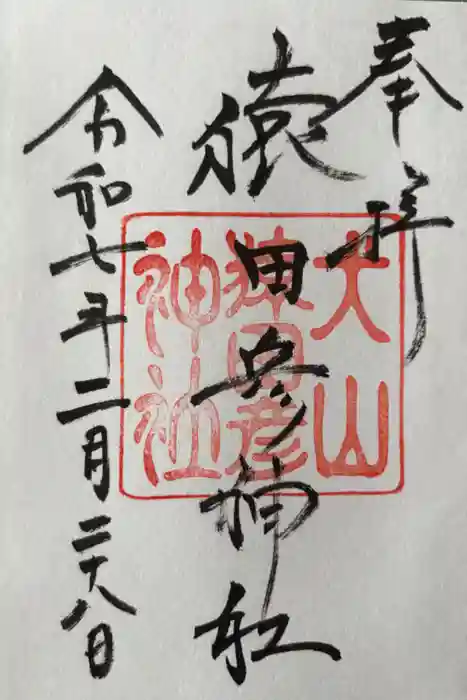 奉拝
犬山
猿田彦
神社
猿田彦神社
令和七年二月二十八日